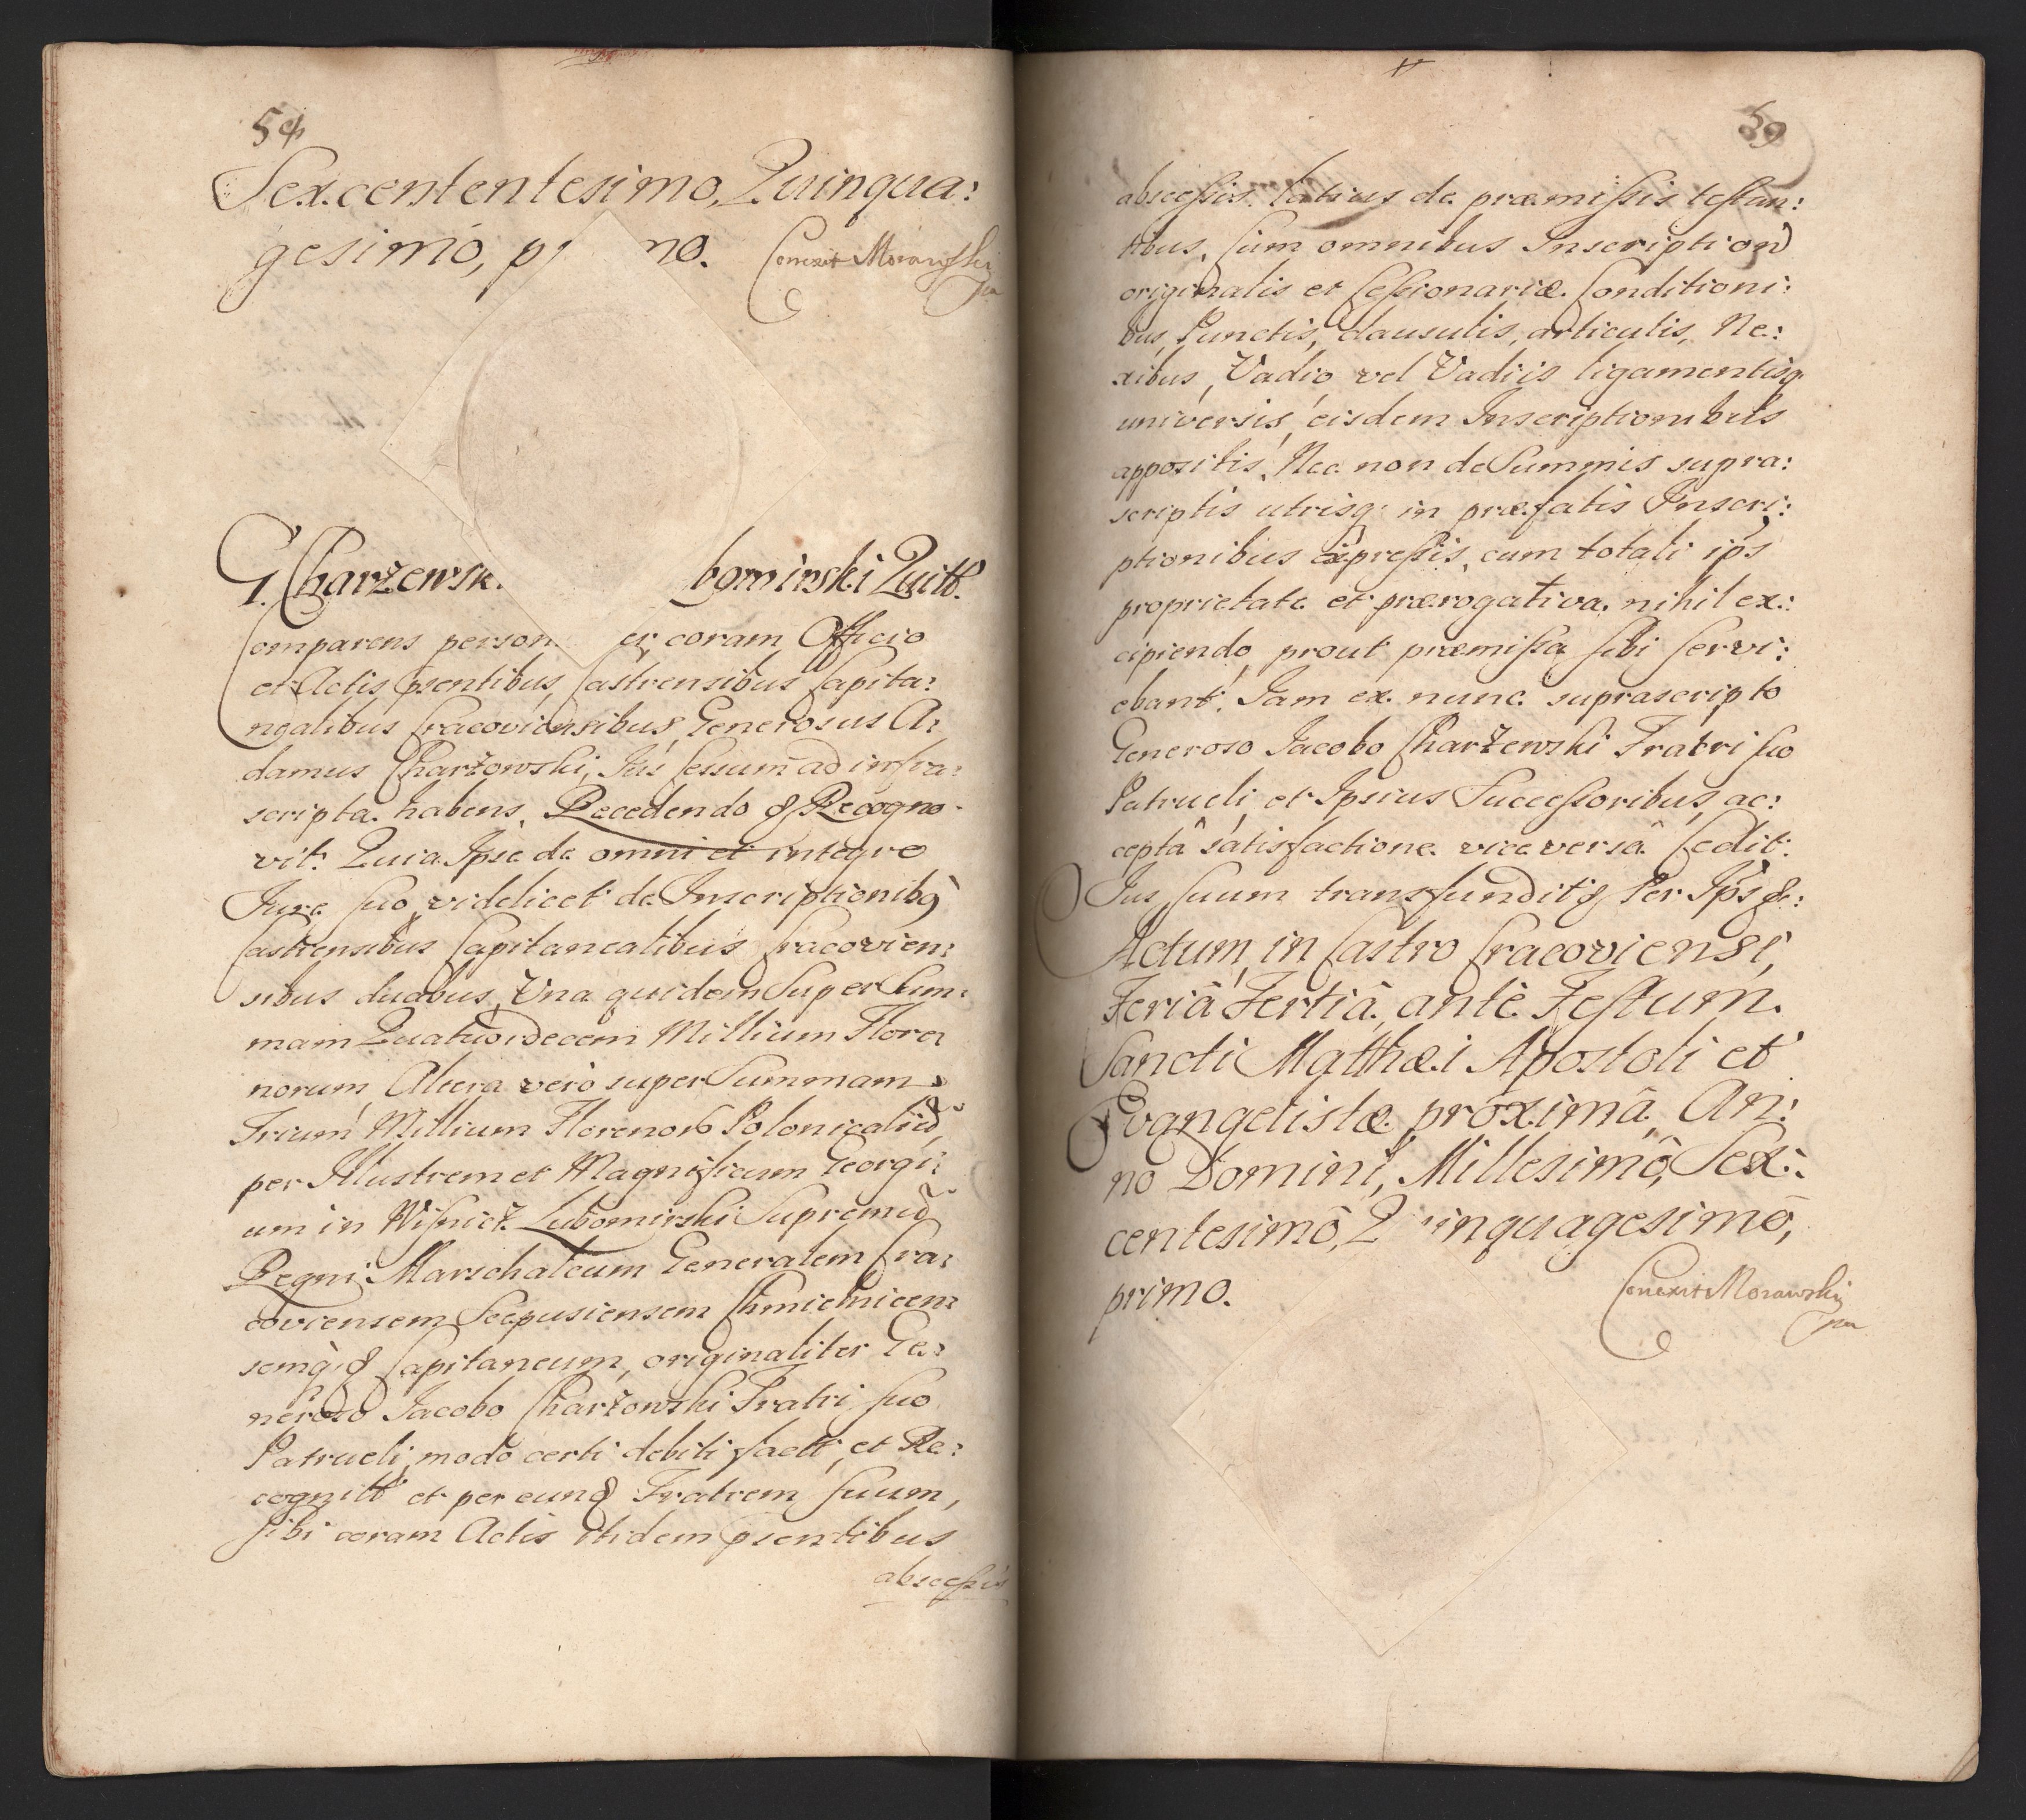 54
Sexcententesimo, Quinqua:
gesimo, p no. Conexit Morawski
G. Charzewsk. bomirski Quitt.
Comparens person er, coram Officio
et Actis pñtibus, Castrensibus Capita:
nealibus Cracoviensibus, Generosus A:
damus Charzowski, Jus Cessum ad infra:
scripta habens. Recedendo & Recogno-
vit. Quia Ipse de omni et integro
Jure suo, videlicet de Inscriptionibq
Castrensibus Capitanealibus Cracovien:
sibus duabus, Una quidem Super Sum:
mam Quatuordecem Millium Flore:
norum, Altera vero super Summam
Trium Millium Florenor Polonicaliu,
per Illustrem et Magnificum Georgi:
um in Wisnicz Lubomirski Supremu
Regni Marschalcum Generalem Cra:
coviensem Scepusiensem Chmielnicen:
semq & Capitaneum, originaliter Ge:
neroso Jacobo Charzowski Fratri suo
Patrueli, modo certi debiti factt, et Re:
cognitt et per eund Fratrem suum,
sibi coram Actis itidem pñtibus
abscessis
59
abscessis. latius de præmissis testan:
tibus, Cum omnibus Inscription
originalis et Cessionariæ Conditioni:
bus, Punctis, clausulis, articulis, Ne:
xibus, Vadio vel Vadiis ligamentisq
universis, eisdem Inscriptionibus
appositis, Nec non de Summis supra:
scriptis utrisq in præfatis Inscri:
ptionibus expressis, cum totali ips
proprietate et prærogativa, nihil ex:
cipiendo, prout præmissa sibi servi:
ebant. Jam ex nunc suprascripto
Generoso Jacobo Charzewski Fratri suo
Patrueli, et Ipsius Successoribus, ac:
ceptâ satisfactione vice versâ Cedit.
Jus suum transfundit & Per Ips &:
Actum, in Castro Cracoviensi,
Feriâ Tertiâ, ante Festum.
Sancti Matthæi Apostoli et
Evangelistæ proximâ, An:
no Domini, Millesimô, Sex:
centesimô, Q inquagesimô,
primo. Conexit Morawski